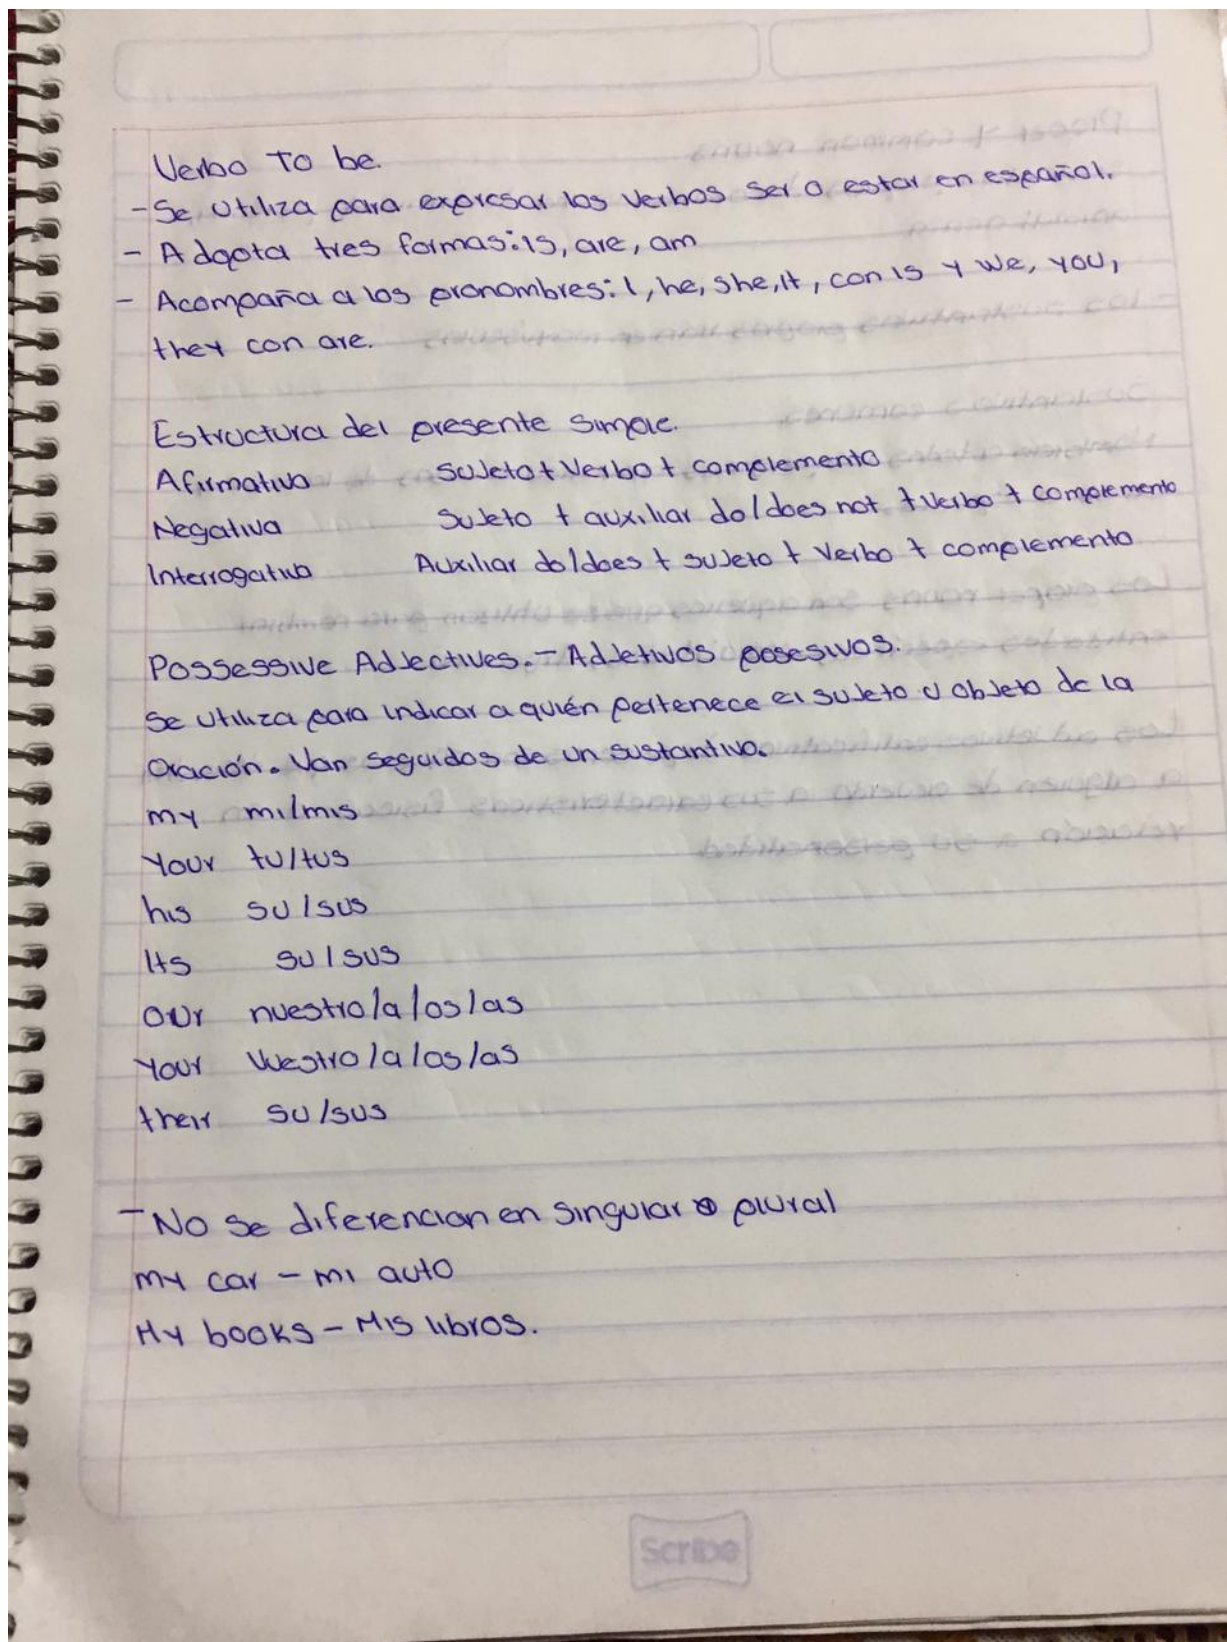 Verbo To be.
- Se utiliza para expresar los verbos ser o estar en español.
- Adopta tres formas: is, are, am
- Acompaña a los pronombres: I, he, she, it, con is y we, you,
they con are.
Estructura del presente simple.
Afirmativo Sujeto + Verbo + complemento
Negativa Sujeto + auxiliar do/does not + verbo + complemento
Interrogativa Auxiliar do/does + sujeto + verbo + complemento
Possessive Adjectives. - Adjetivos posesivos.
Se utiliza para indicar a quién pertenece el sujeto u objeto de la
oración. Van seguidos de un sustantivo.
my mi/mis
Your tu/tus
his su/sus
Its su/sus
our nuestro/a/os/as
Your Vuestro/a/os/as
their su/sus
- No se diferencian en singular o plural
my car - mi auto
My books - Mis libros.
Scribe